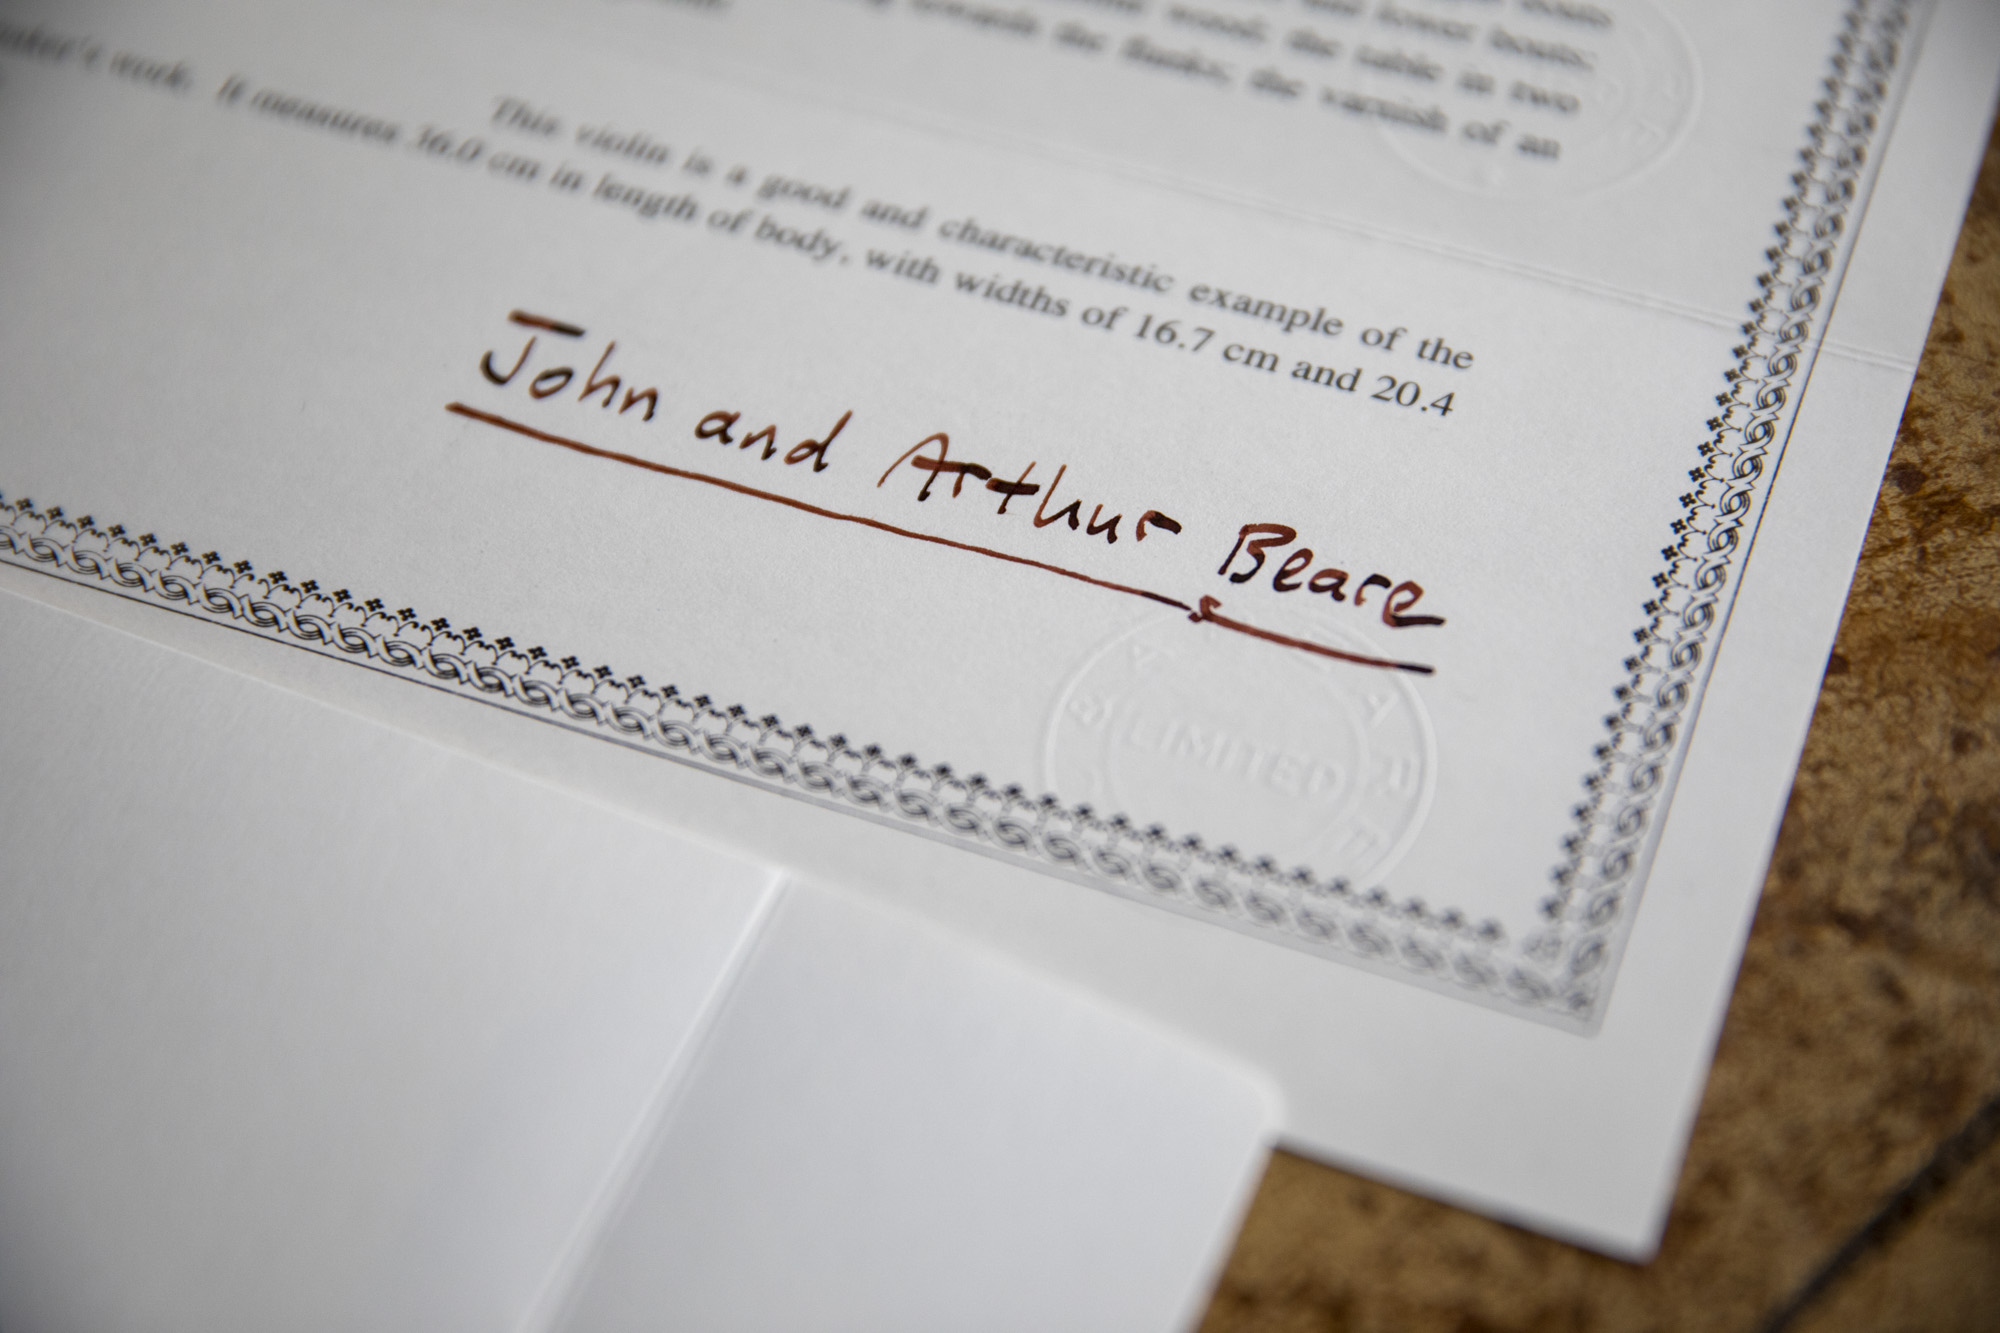 bouts
and lower bouts;
wood; the table in two
towards the flanks; the varnish of an
This violin is a good and characteristic example of the
maker's work. It measures 36.0 cm in length of body, with widths of 16.7 cm and 20.4
John and Arthur Beare
BEARE
LIMITED